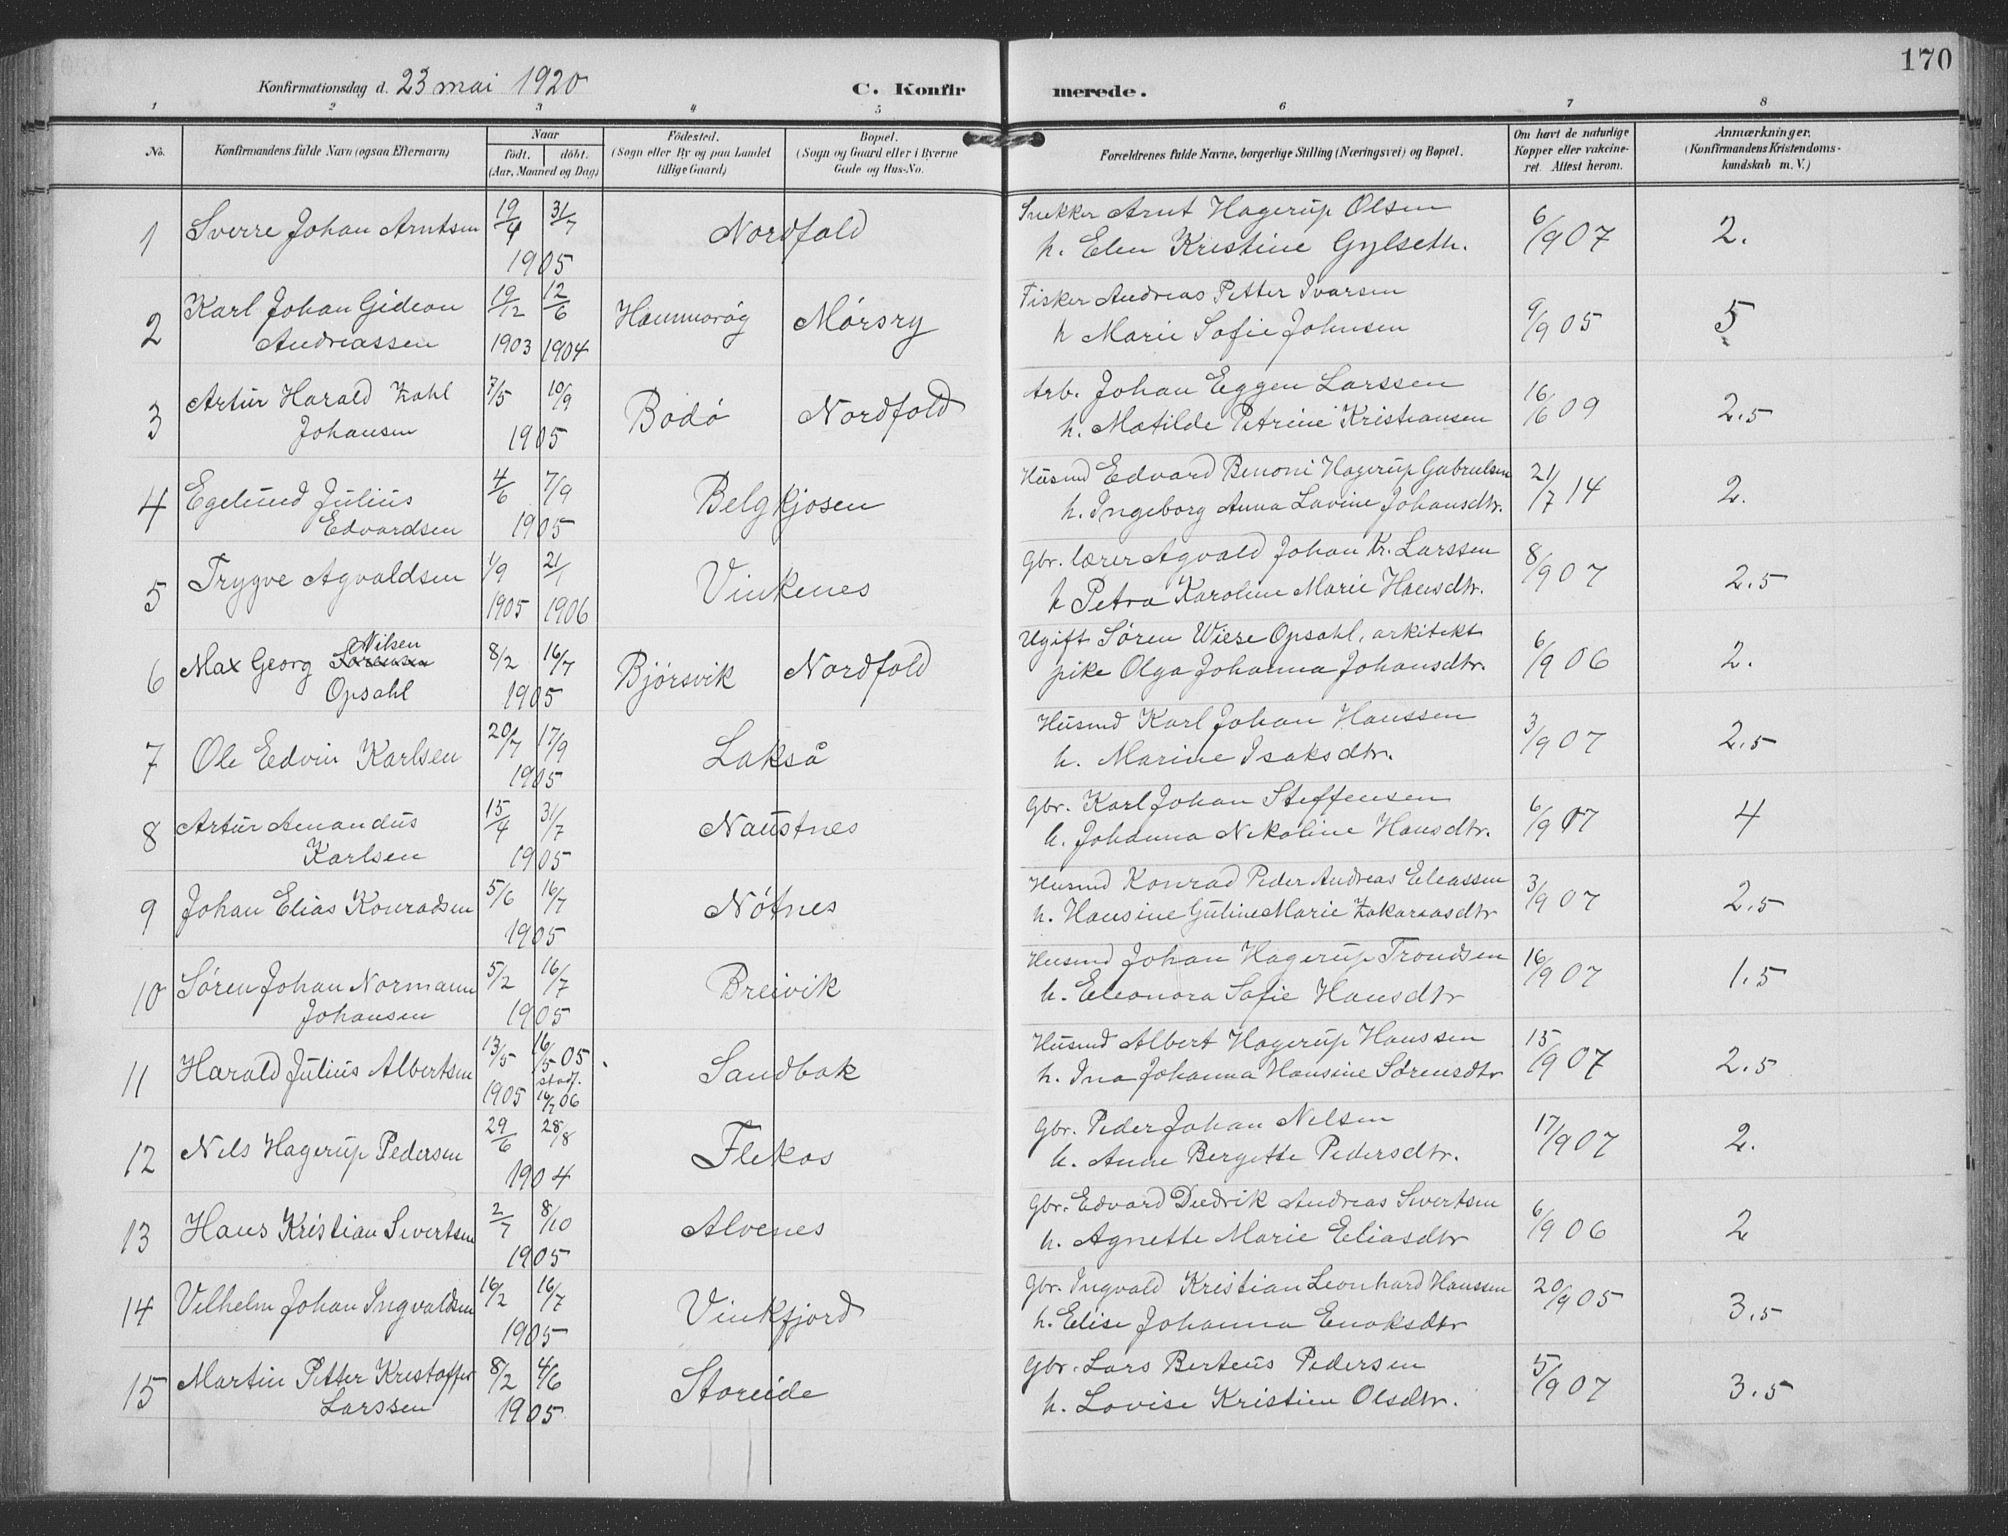 170
Konfirmationsdag d. 23 mai 1920 C. Konfir merede.
1 2 3 4 5 6 7 8
No. Konfirmandens fulde Navn (ogsaa Efternavn) Naar født. døbt. (Aar, Maaned og Dag)
Fødested. (Sogn eller By og paa Landet tillige Gaard)
Bopæl. (Sogn og Gaard eller i Byerne Gade og Hus-No.
Forældrenes fulde Navne, borgerlige Stilling (Næringsvei) og Bopæl.
Om havt de naturlige Kopper eller vakcineret. Attest herom.
Anmærkninger. (Konfirmandens Kristendomskundskab m. V.)
1 Sverre Johan Arntsen 19/4 31/7 1905 Nordfold Snekker Arnt Hagerup Olsen 6/9 07 2.
h. Elen Kristine Gylseth.
2 Karl Johan Gideon 19/12 12/6 Hammarøg Mørsry Fisker Andreas Petter Ivarsen 9/9 05 5
Andreassen 1903 1904 h Marie Sofie Johnsen
3 Artur Harald Zahl 7/5 10/9 Bodø Nordfold Arb. Johan Eggen Larssen 16/6 09 2.5
Johansen 1905 h. Matilde Petrine Kristiansen
4 Egelund Julius 4/6 7/9 Belgkjosen Husmd Edvard Benoni Hagerup Gabrielsen 21/7 14 2.
Edvardsen 1905 h. Ingeborg Anna Lovine Johansdtr.
5 Trygve Agvaldsen 1/9 21/1 Vinkenes Gbr. lærer Agvald Johan Kr. Larssen 8/9 07 2.5
1905 1906 h Petra Karoline Marie Hansdtr.
6 Max Georg Nilsen 8/2 16/7 Bjørsvik Nordfold Ugift Søren Wiese Opsahl, arkitekt 6/9 06 2.
Opsahl 1905 pike Olga Johanna Johansdtr.
7 Ole Edvin Karlsen 20/7 17/9 1905 Lakså Husmd Karl Johan Hanssen 3/9 07 2.5
h. Marine Isaksdtr.
8 Artur Amandus 15/4 31/7 Naustnes Gbr. Karl Johan Steffensen 6/9 07 4
Karlsen 1905 h. Johanna Nikoline Hansdtr.
9 Johan Elias Konradsen 5/6 16/7 1905 Nøtnes Husmd Konrad Peder Andreas Eleassen 3/9 07 2.5
h. Hansine Gutine Marie Zakariasdtr
10 Søren Johan Normann 5/2 16/7 Breivik Husmd Johan Hagerup Trondsen 16/9 07 1.5
Johansen 1905 h. Eleonora Sofie Hansdtr
11 Harald Julius Albertsen 13/5 16/5 05 Sandbak Husmd Albert Hagerup Hanssen 15/9 07 2.5
1905 stadf. 16/7 06 h. Ina Johanna Hansine Sørensdtr
12 Nils Hagerup Pedersen 29/6 28/8 1904 Flekas Gbr. Peder Johan Nilsen 17/9 07 2.
h. Anne Bergette Pedersdtr.
13 Hans Kristian Sivertsen 2/7 8/10 1905 Alvenes Gbr. Edvard Diedrik Andreas Sivertsen 6/9 06 2
h. Agnette Marie Eliasdtr
14 Vilhelm Johan Ingvaldsen 16/2 16/7 1905 Vinkfjord Gbr. Ingvald Kristian Leonhard Hanssen 20/9 05 3.5
h. Elise Johanna Enoksdtr
15 Martin Petter Kristoffer 8/2 4/6 Storeide Gbr. Lars Berteus Pedersen 5/9 07 3.5
Larssen 1905 h. Lovise Kristine Olsdtr.